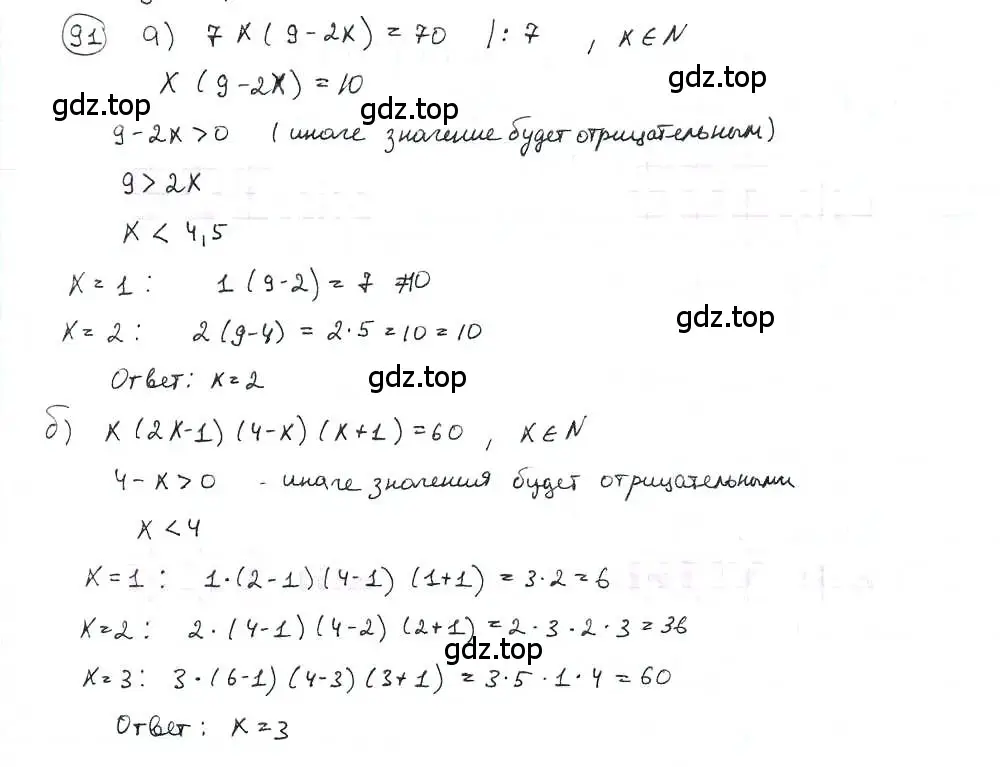 91 а) 7x(9-2x)=70 |:7 , x∈N
x(9-2x)=10
gdz.top gdz.top gdz.top
9-2x>0 (иначе значение будет отрицательным)
9>2x
x<4,5
x=1: 1(9-2)=7 ≠10
x=2: 2(9-4)=2·5=10=10 gdz.top
Ответ: x=2 gdz.top
б) x(2x-1)(4-x)(x+1)=60, x∈N
4-x>0 - иначе значения будет отрицательными
x<4
x=1: 1·(2-1)(4-1)(1+1)=3·2=6
x=2: 2·(4-1)(4-2)(2+1)=2·3·2·3=36
gdz.top
x=3: 3·(6-1)(4-3)(3+1)=3·5·1·4=60
Ответ: x=3